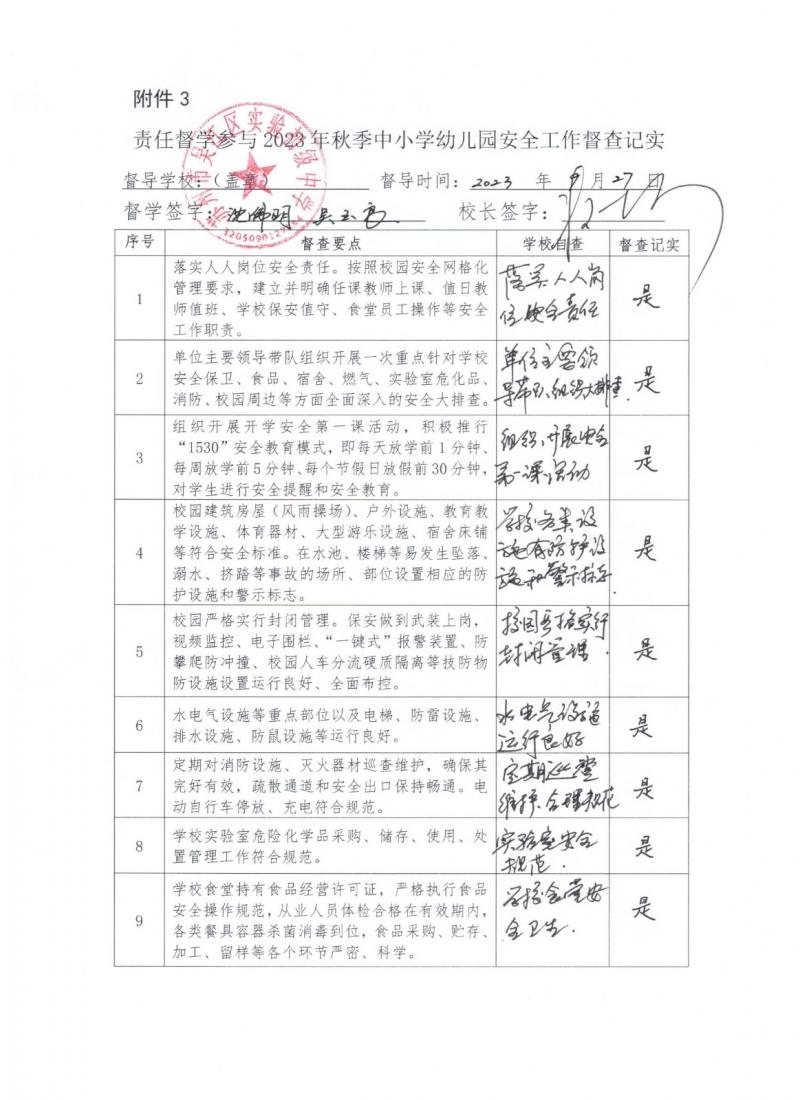 附件 3
责任督学参与 2023 年秋季中小学幼儿园安全工作督查记实
苏州市吴江区实验初级中学
督导学校：（盖章） 督导时间：2023 年 9 月 27 日
督学签字： 校长签字：
序号 督查要点 学校自查 督查记实
1
落实人人岗位安全责任。按照校园安全网格化
管理要求，建立并明确任课教师上课、值日教
师值班、学校保安值守、食堂员工操作等安全
工作职责。
落实人人岗
位安全责任
是
2
单位主要领导带队组织开展一次重点针对学校
安全保卫、食品、宿舍、燃气、实验室危化品、
消防、校园周边等方面全面深入的安全大排查。
单位主要领
导带队、组织大排查.
是
3
组织开展开学安全第一课活动，积极推行
“1530”安全教育模式，即每天放学前 1 分钟、
每周放学前 5 分钟、每个节假日放假前 30 分钟，
对学生进行安全提醒和安全教育。
组织开展安全
第一课活动
是
4
校园建筑房屋（风雨操场）、户外设施、教育教
学设施、体育器材、大型游乐设施、宿舍床铺
等符合安全标准。在水池、楼梯等易发生坠落、
溺水、挤踏等事故的场所、部位设置相应的防
护设施和警示标志。
学校各类设
施有防护设
施和警示标志
是
5
校园严格实行封闭管理。保安做到武装上岗，
视频监控、电子围栏、“一键式”报警装置、防
攀爬防冲撞、校园人车分流硬质隔离等技防物
防设施设置运行良好、全面布控。
校园严格实行
封闭管理.
是
6
水电气设施等重点部位以及电梯、防雷设施、
排水设施、防鼠设施等运行良好。
水电气设施
运行良好
是
7
定期对消防设施、灭火器材巡查维护，确保其
完好有效，疏散通道和安全出口保持畅通。电
动自行车停放、充电符合规范。
定期巡查
维护、合理规范
是
8
学校实验室危险化学品采购、储存、使用、处
置管理工作符合规范。
实验室安全
规范.
是
9
学校食堂持有食品经营许可证，严格执行食品
安全操作规范，从业人员体检合格在有效期内，
各类餐具容器杀菌消毒到位，食品采购、贮存、
加工、留样等各个环节严密、科学。
学校食堂安
全卫生.
是